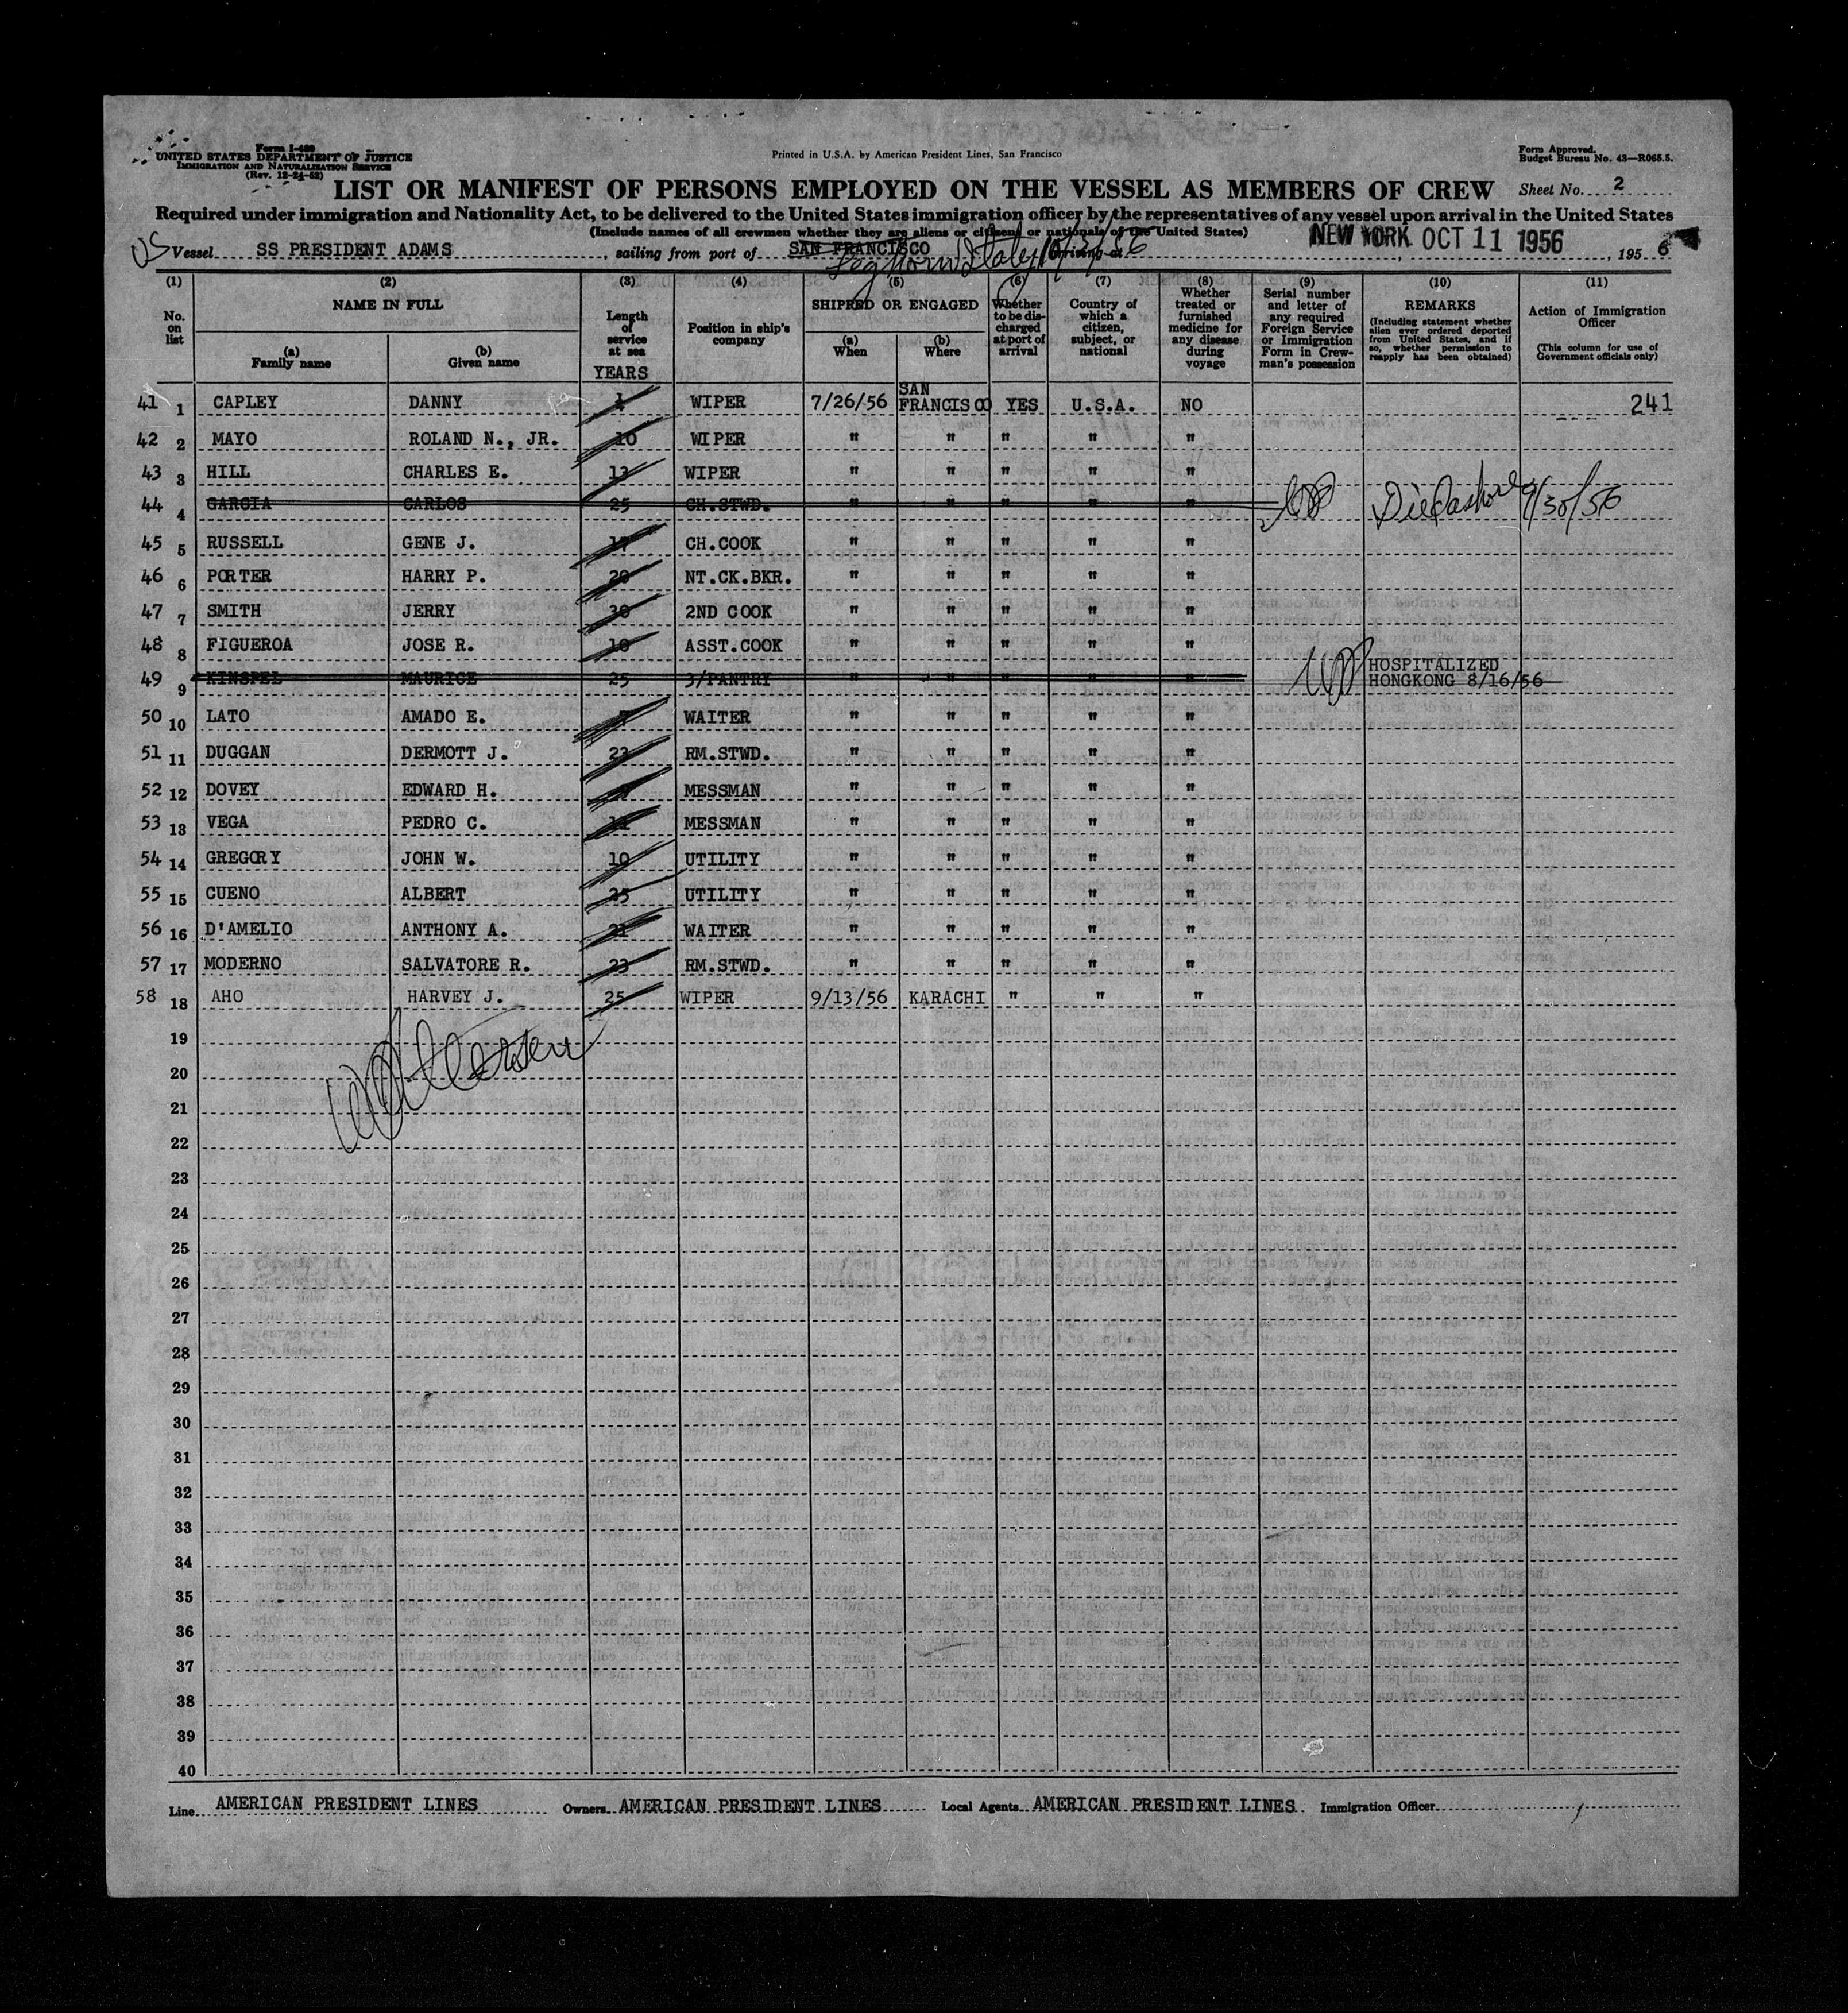 Form I-489
UNITED STATES DEPARTMENT OF JUSTICE
IMMIGRATION AND NATURALIZATION SERVICE
(Rev. 12-24-52)
Printed in U.S.A. by American President Lines, San Francisco
Form Approved.
Budget Bureau No. 43—R065.5.
LIST OR MANIFEST OF PERSONS EMPLOYED ON THE VESSEL AS MEMBERS OF CREW
Sheet No. 2
Required under immigration and Nationality Act, to be delivered to the United States immigration officer by the representatives of any vessel upon arrival in the United States
(Include names of all crewmen whether they are aliens or citizens or nationals of the United States)
US Vessel SS PRESIDENT ADAMS, sailing from port of SAN FRANCISCO Leghorn Italy 10/3/56 arriving at NEW YORK OCT 11 1956, 195 6
(1) No. on list
(2) NAME IN FULL
(a) Family name
(b) Given name
(3) Length of service at sea YEARS
(4) Position in ship's company
(5) SHIPPED OR ENGAGED
(a) When
(b) Where
(6) Whether to be discharged at port of arrival
(7) Country of which a citizen, subject, or national
(8) Whether treated or furnished medicine for any disease during voyage
(9) Serial number and letter of any required Foreign Service or Immigration Form in Crewman's possession
(10) REMARKS (Including statement whether alien ever ordered deported from United States, and if so, whether permission to reapply has been obtained)
(11) Action of Immigration Officer (This column for use of Government officials only)
41 1 CAPLEY DANNY WIPER 7/26/56 SAN FRANCISCO YES U.S.A. NO 241
42 2 MAYO ROLAND N., JR. 10 WIPER " " " " "
43 3 HILL CHARLES E. 13 WIPER " " " " "
44 4 GARCIA CARLOS 25 CH.STWD. " " " " " Died ashore 9/30/56
45 5 RUSSELL GENE J. 17 CH.COOK " " " " "
46 6 PORTER HARRY P. 20 NT.CK.BKR. " " " " "
47 7 SMITH JERRY 30 2ND COOK " " " " "
48 8 FIGUEROA JOSE R. 10 ASST.COOK " " " " "
49 9 KINSPEL MAURICE 25 3/PANTRY " " " " " HOSPITALIZED HONGKONG 8/16/56
50 10 LATO AMADO E. WAITER " " " " "
51 11 DUGGAN DERMOTT J. 23 RM.STWD. " " " " "
52 12 DOVEY EDWARD H. MESSMAN " " " " "
53 13 VEGA PEDRO C. MESSMAN " " " " "
54 14 GREGORY JOHN W. 10 UTILITY " " " " "
55 15 CUENO ALBERT 25 UTILITY " " " " "
56 16 D'AMELIO ANTHONY A. 21 WAITER " " " " "
57 17 MODERNO SALVATORE R. 23 RM.STWD. " " " " "
58 18 AHO HARVEY J. 25 WIPER 9/13/56 KARACHI " " "
19
20
21
22
23
24
25
26
27
28
29
30
31
32
33
34
35
36
37
38
39
40
Line AMERICAN PRESIDENT LINES Owners AMERICAN PRESIDENT LINES Local Agents AMERICAN PRESIDENT LINES Immigration Officer